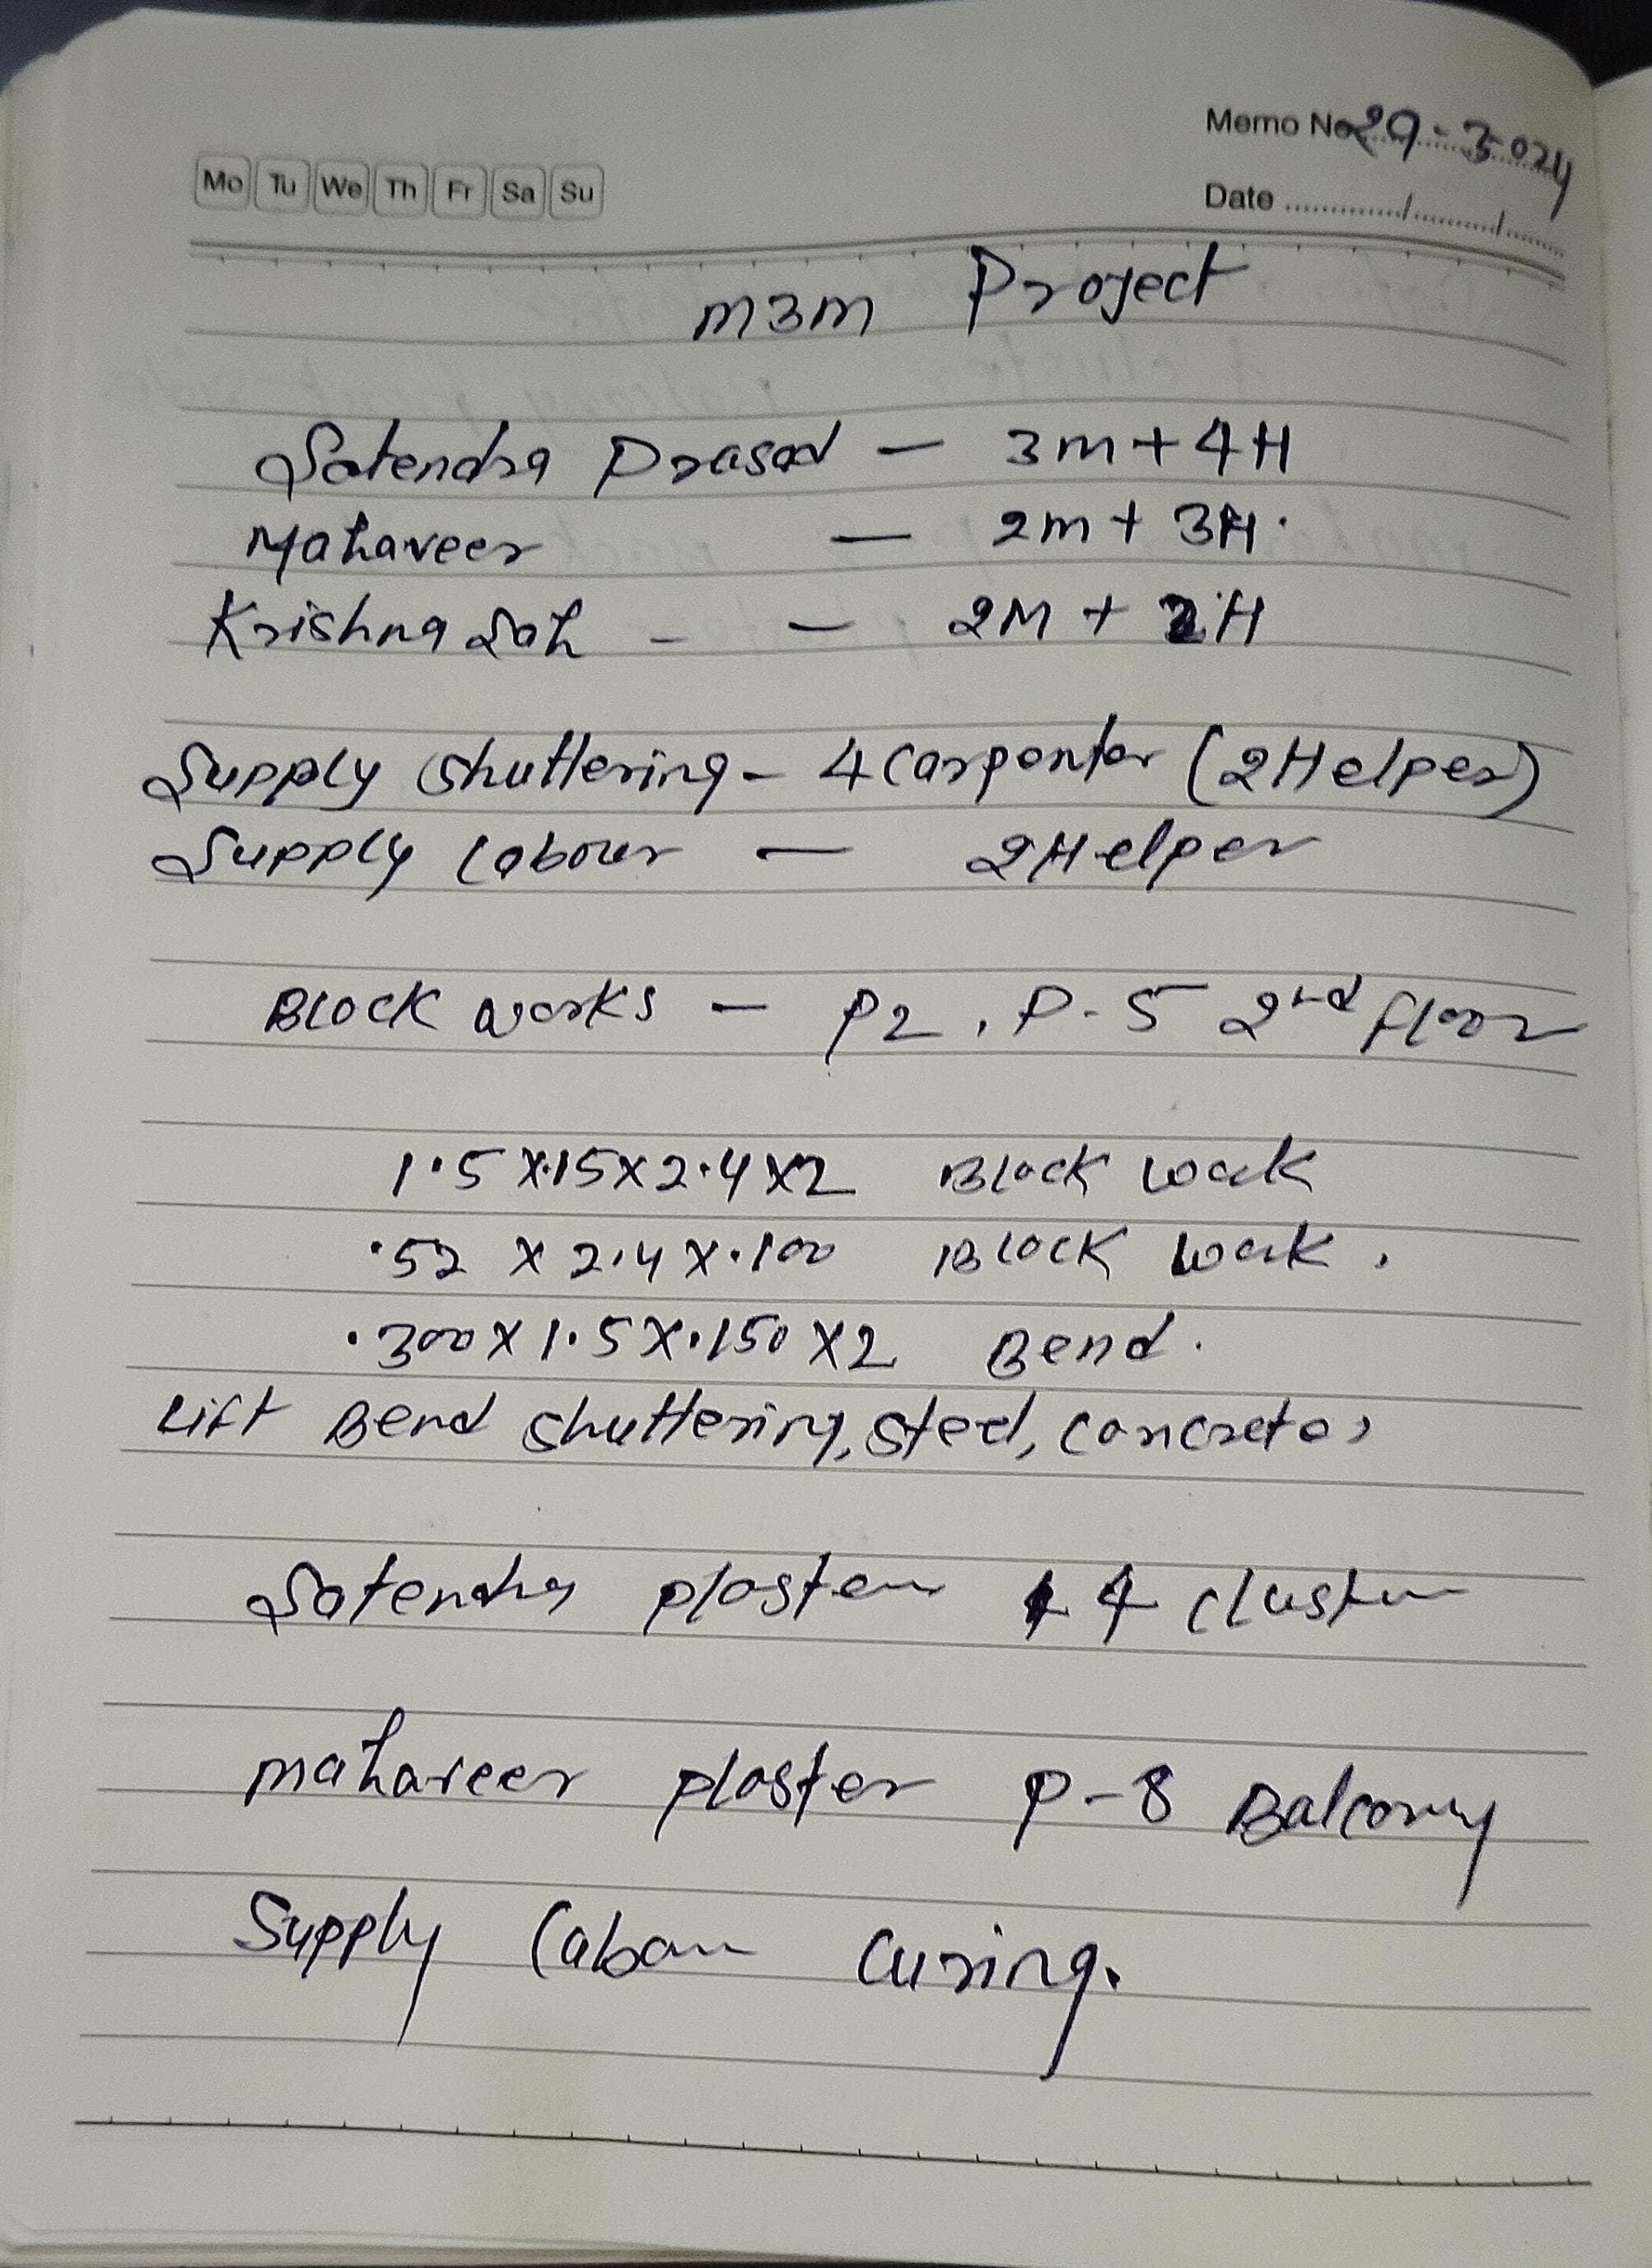 Memo No 29-3-024
Mo Tu We Th Fr Sa Su
Date ............/............/............
m3m Project
Satendra Prasad — 3m + 4H
Mahaveer — 2m + 3H.
Krishna Sah - — 2M + 2H
Supply Shuttering - 4 Carpenter (2 Helper)
Supply labour — 2 Helper
Block works — P2, P-5 2nd floor
1.5 x .15 x 2.4 x 2 Block work
.52 x 2.4 x .100 Block work.
.300 x 1.5 x .150 x 2 Bend.
Lift Bend Shuttering, steel, concrete,
Satendra plaster 4 cluster
mahaveer plaster P-8 Balcony
Supply labour Curing.